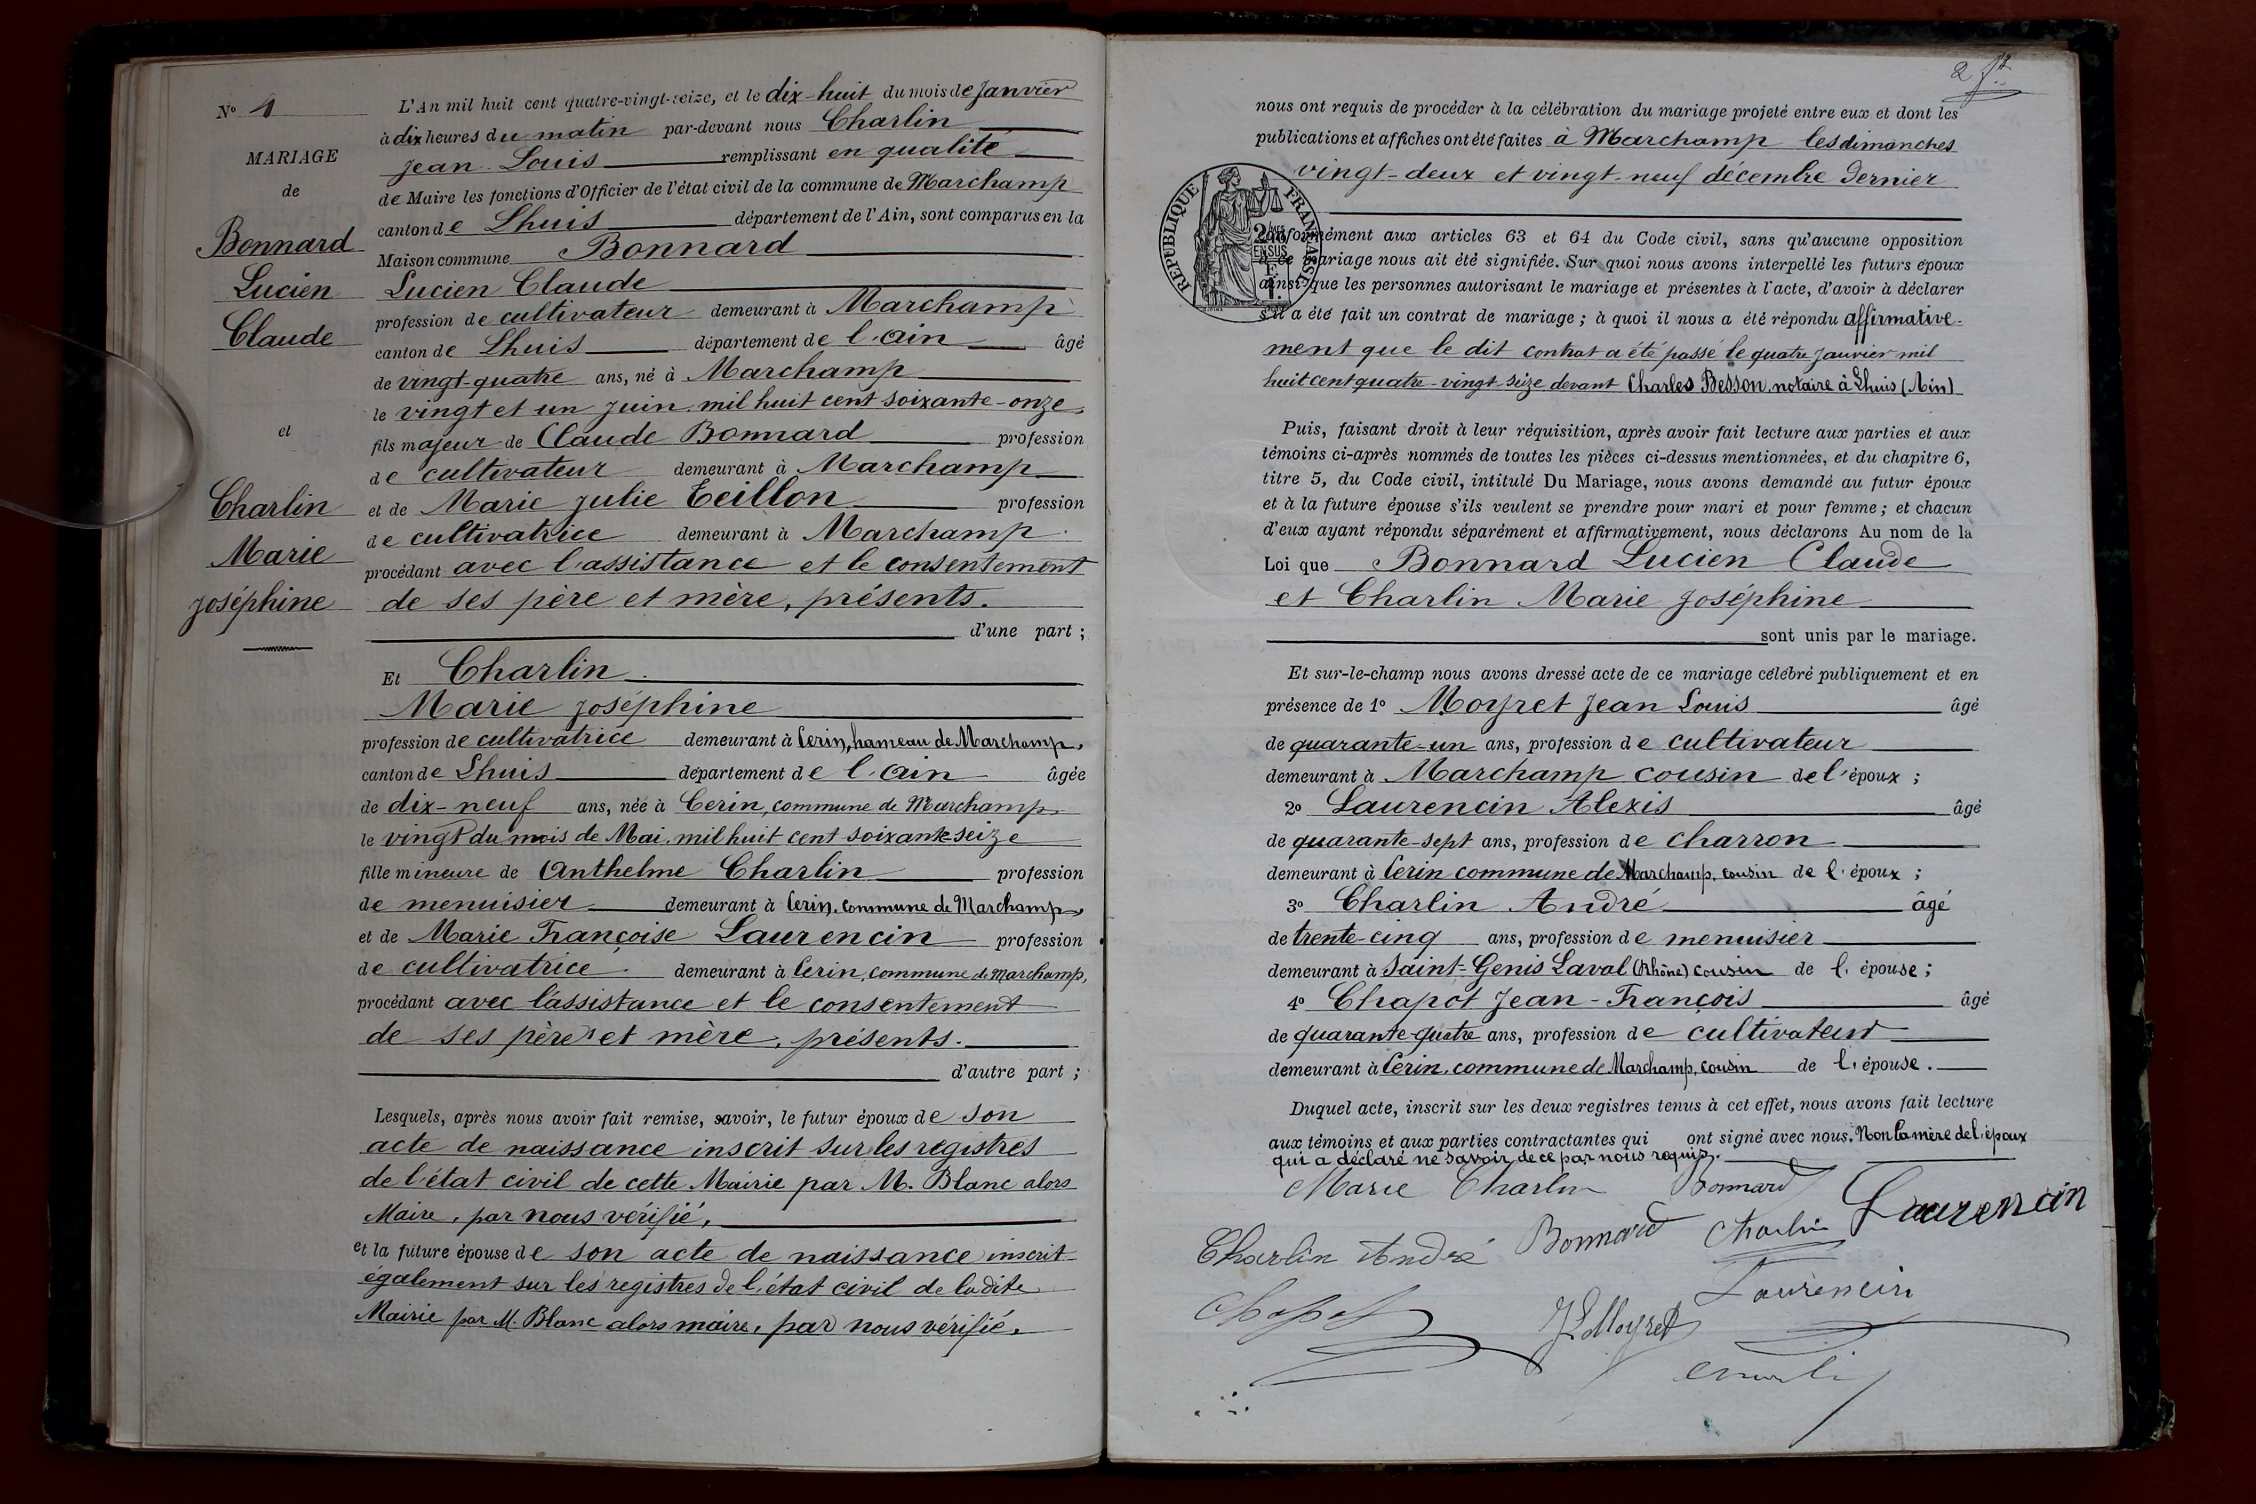 N° 1
MARIAGE
de
Bonnard
Lucien
Claude
et
Charlin
Marie
Joséphine
L'An mil huit cent quatre-vingt-seize, et le dix-huit du mois de Janvier
à dix heures du matin par-devant nous Charlin
Jean Louis remplissant en qualité
de Maire les fonctions d'Officier de l'état civil de la commune de Marchamp
canton de Lhuis département de l'Ain, sont comparus en la
Maison commune Bonnard
Lucien Claude
profession de cultivateur demeurant à Marchamp
canton de Lhuis département de l'ain âgé
de vingt-quatre ans, né à Marchamp
le vingt et un juin mil huit cent soixante-onze,
fils majeur de Claude Bonnard profession
de cultivateur demeurant à Marchamp
et de Marie Julie Teillon profession
de cultivatrice demeurant à Marchamp.
procédant avec l'assistance et le consentement
de ses père et mère, présents.
d'une part ;
Et Charlin
Marie Joséphine
profession de cultivatrice demeurant à Cerin, hameau de Marchamp,
canton de Lhuis département de l'ain âgée
de dix-neuf ans, née à Cerin, commune de Marchamp,
le vingt du mois de Mai, mil huit cent soixante-seize
fille mineure de Anthelme Charlin profession
de menuisier demeurant à Cerin, commune de Marchamp,
et de Marie Françoise Laurencin profession
de cultivatrice. demeurant à Cerin, commune de Marchamp,
procédant avec l'assistance et le consentement
de ses père et mère, présents.
d'autre part ;
Lesquels, après nous avoir fait remise, savoir, le futur époux de son
acte de naissance inscrit sur les registres
de l'état civil de cette Mairie par M. Blanc alors
Maire, par nous vérifié,
et la future épouse de son acte de naissance inscrit
également sur les registres de l'état civil de ladite
Mairie par M. Blanc alors maire, par nous vérifié.
2
nous ont requis de procéder à la célébration du mariage projeté entre eux et dont les
publications et affiches ont été faites à Marchamp les dimanches
vingt-deux et vingt-neuf décembre dernier
REPUBLIQUE FRANÇAISE
conformément aux articles 63 et 64 du Code civil, sans qu'aucune opposition
à ce mariage nous ait été signifiée. Sur quoi nous avons interpellé les futurs époux
ainsi que les personnes autorisant le mariage et présentes à l'acte, d'avoir à déclarer
s'il a été fait un contrat de mariage ; à quoi il nous a été répondu affirmative-
ment que le dit contrat a été passé le quatre janvier mil
huit cent quatre-vingt-seize devant Charles Besson, notaire à Lhuis (Ain)
Puis, faisant droit à leur réquisition, après avoir fait lecture aux parties et aux
témoins ci-après nommés de toutes les pièces ci-dessus mentionnées, et du chapitre 6,
titre 5, du Code civil, intitulé Du Mariage, nous avons demandé au futur époux
et à la future épouse s'ils veulent se prendre pour mari et pour femme ; et chacun
d'eux ayant répondu séparément et affirmativement, nous déclarons Au nom de la
Loi que Bonnard Lucien Claude
et Charlin Marie Joséphine
sont unis par le mariage.
Et sur-le-champ nous avons dressé acte de ce mariage célébré publiquement et en
présence de 1° Moyret Jean Louis âgé
de quarante-un ans, profession de cultivateur
demeurant à Marchamp cousin de l'époux ;
2° Laurencin Alexis âgé
de quarante-sept ans, profession de charron
demeurant à Cerin commune de Marchamp, cousin de l'époux ;
3° Charlin André âgé
de trente-cinq ans, profession de menuisier
demeurant à Saint-Genis Laval (Rhône) cousin de l'épouse ;
4° Chapot Jean-François âgé
de quarante-quatre ans, profession de cultivateur
demeurant à Cerin, commune de Marchamp, cousin de l'épouse.
Duquel acte, inscrit sur les deux registres tenus à cet effet, nous avons fait lecture
aux témoins et aux parties contractantes qui ont signé avec nous. Non la mère de l'époux
qui a déclaré ne savoir de ce par nous requis.
Marie Charlin Bonnard
Laurencin
Charlin André Bonnard Charlin
Laurencin
Chapot JLMoyret